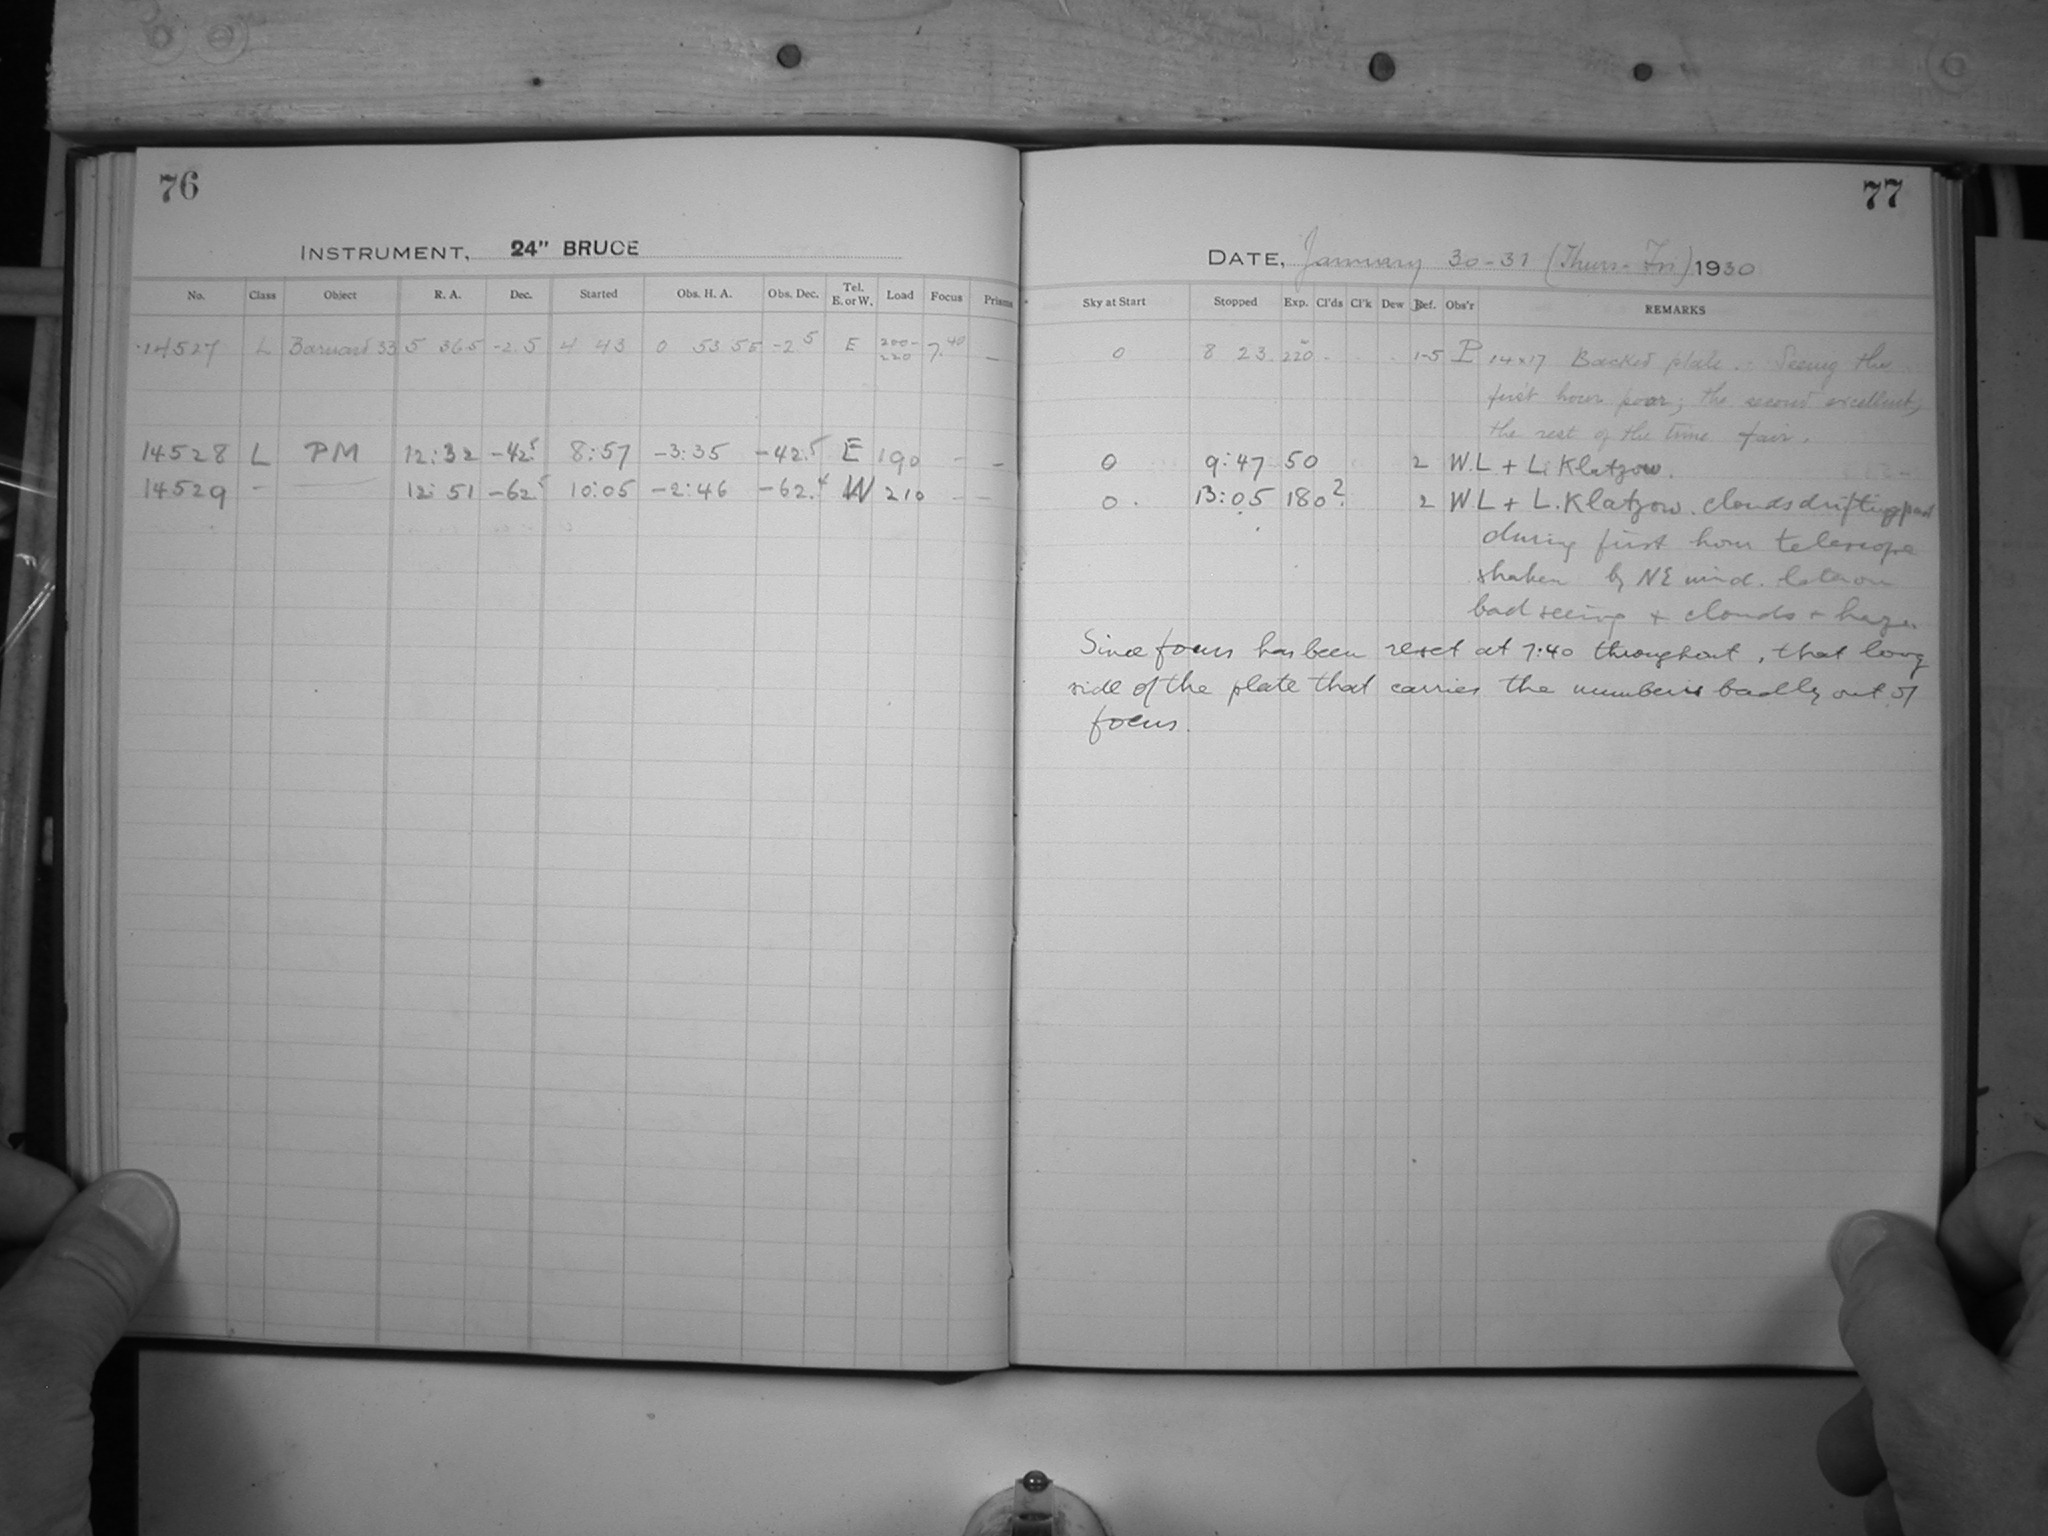 76
INSTRUMENT, 24" BRUCE
No. Class Object R. A. Dec. Started Obs. H. A. Obs. Dec. Tel. E. or W. Load Focus Prisms
14527 L Barnard 33 5 36.5 -2.5 4 43 0 53 55 -2.5 E 200-220 7.40 —
14528 L PM 12:32 -42.5 8:57 -3:35 -42.5 E 190 - -
14529 - — 12:51 -62.5 10:05 -2:46 -62.4 W 210 - -
77
DATE, January 30-31 (Thurs-Fri) 1930
Sky at Start Stopped Exp. Cl'ds Cl'k Dew Def. Obs'r REMARKS
0 8 23 220 1-5 P 14x17 Backed plate. - Seeing the
first hour poor; the second excellent;
the rest of the time fair.
0 9:47 50 2 W.L + L. Klatzow.
0. 13:05 180? 2 W.L + L. Klatzow. clouds drifting past
during first hour telescope
shaken by NE wind. later on
bad seeing + clouds + haze.
Since focus has been reset at 7:40 throughout, that long
side of the plate that carries the number is badly out of
focus.